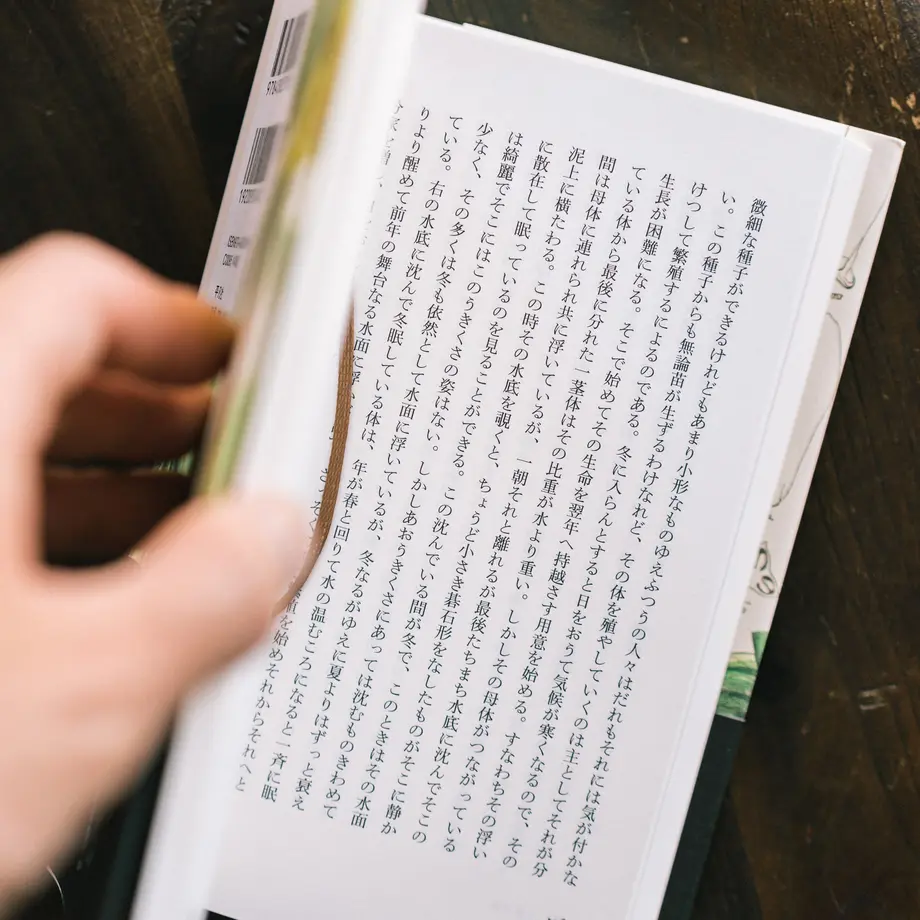 微細な種子ができるけれどもあまり小形なものゆえふつうの人々はだれもそれには気が付かな
い。この種子からも無論苗が生ずるわけなれど、その体を殖やしていくのは主としてそれが分
けつして繁殖するによるのである。冬に入らんとすると日をおうて気候が寒くなるので、その
生長が困難になる。そこで始めてその生命を翌年へ持越さす用意を始める。すなわちその浮い
ている体から最後に分れた一茎体はその比重が水より重い。しかしその母体がつながっている
間は母体に連れられ共に浮いているが、一朝それと離れるが最後たちまち水底に沈んでそこの
泥上に横たわる。この時その水底を覗くと、ちょうど小さき碁石形をなしたものがそこに静か
に散在して眠っているのを見ることができる。この沈んでいる間が冬で、このときはその水面
は綺麗でそこにはこのうきくさの姿はない。しかしあおうきくさにあっては沈むものきわめて
少なく、その多くは冬も依然として水面に浮いているが、冬なるがゆえに夏よりはずっと衰え
ている。右の水底に沈んで冬眠している体は、年が春と回りて水の温むころになると一斉に眠
りより醒めて前年の舞台なる水面に浮
さっそく
を始めそれからそれへと